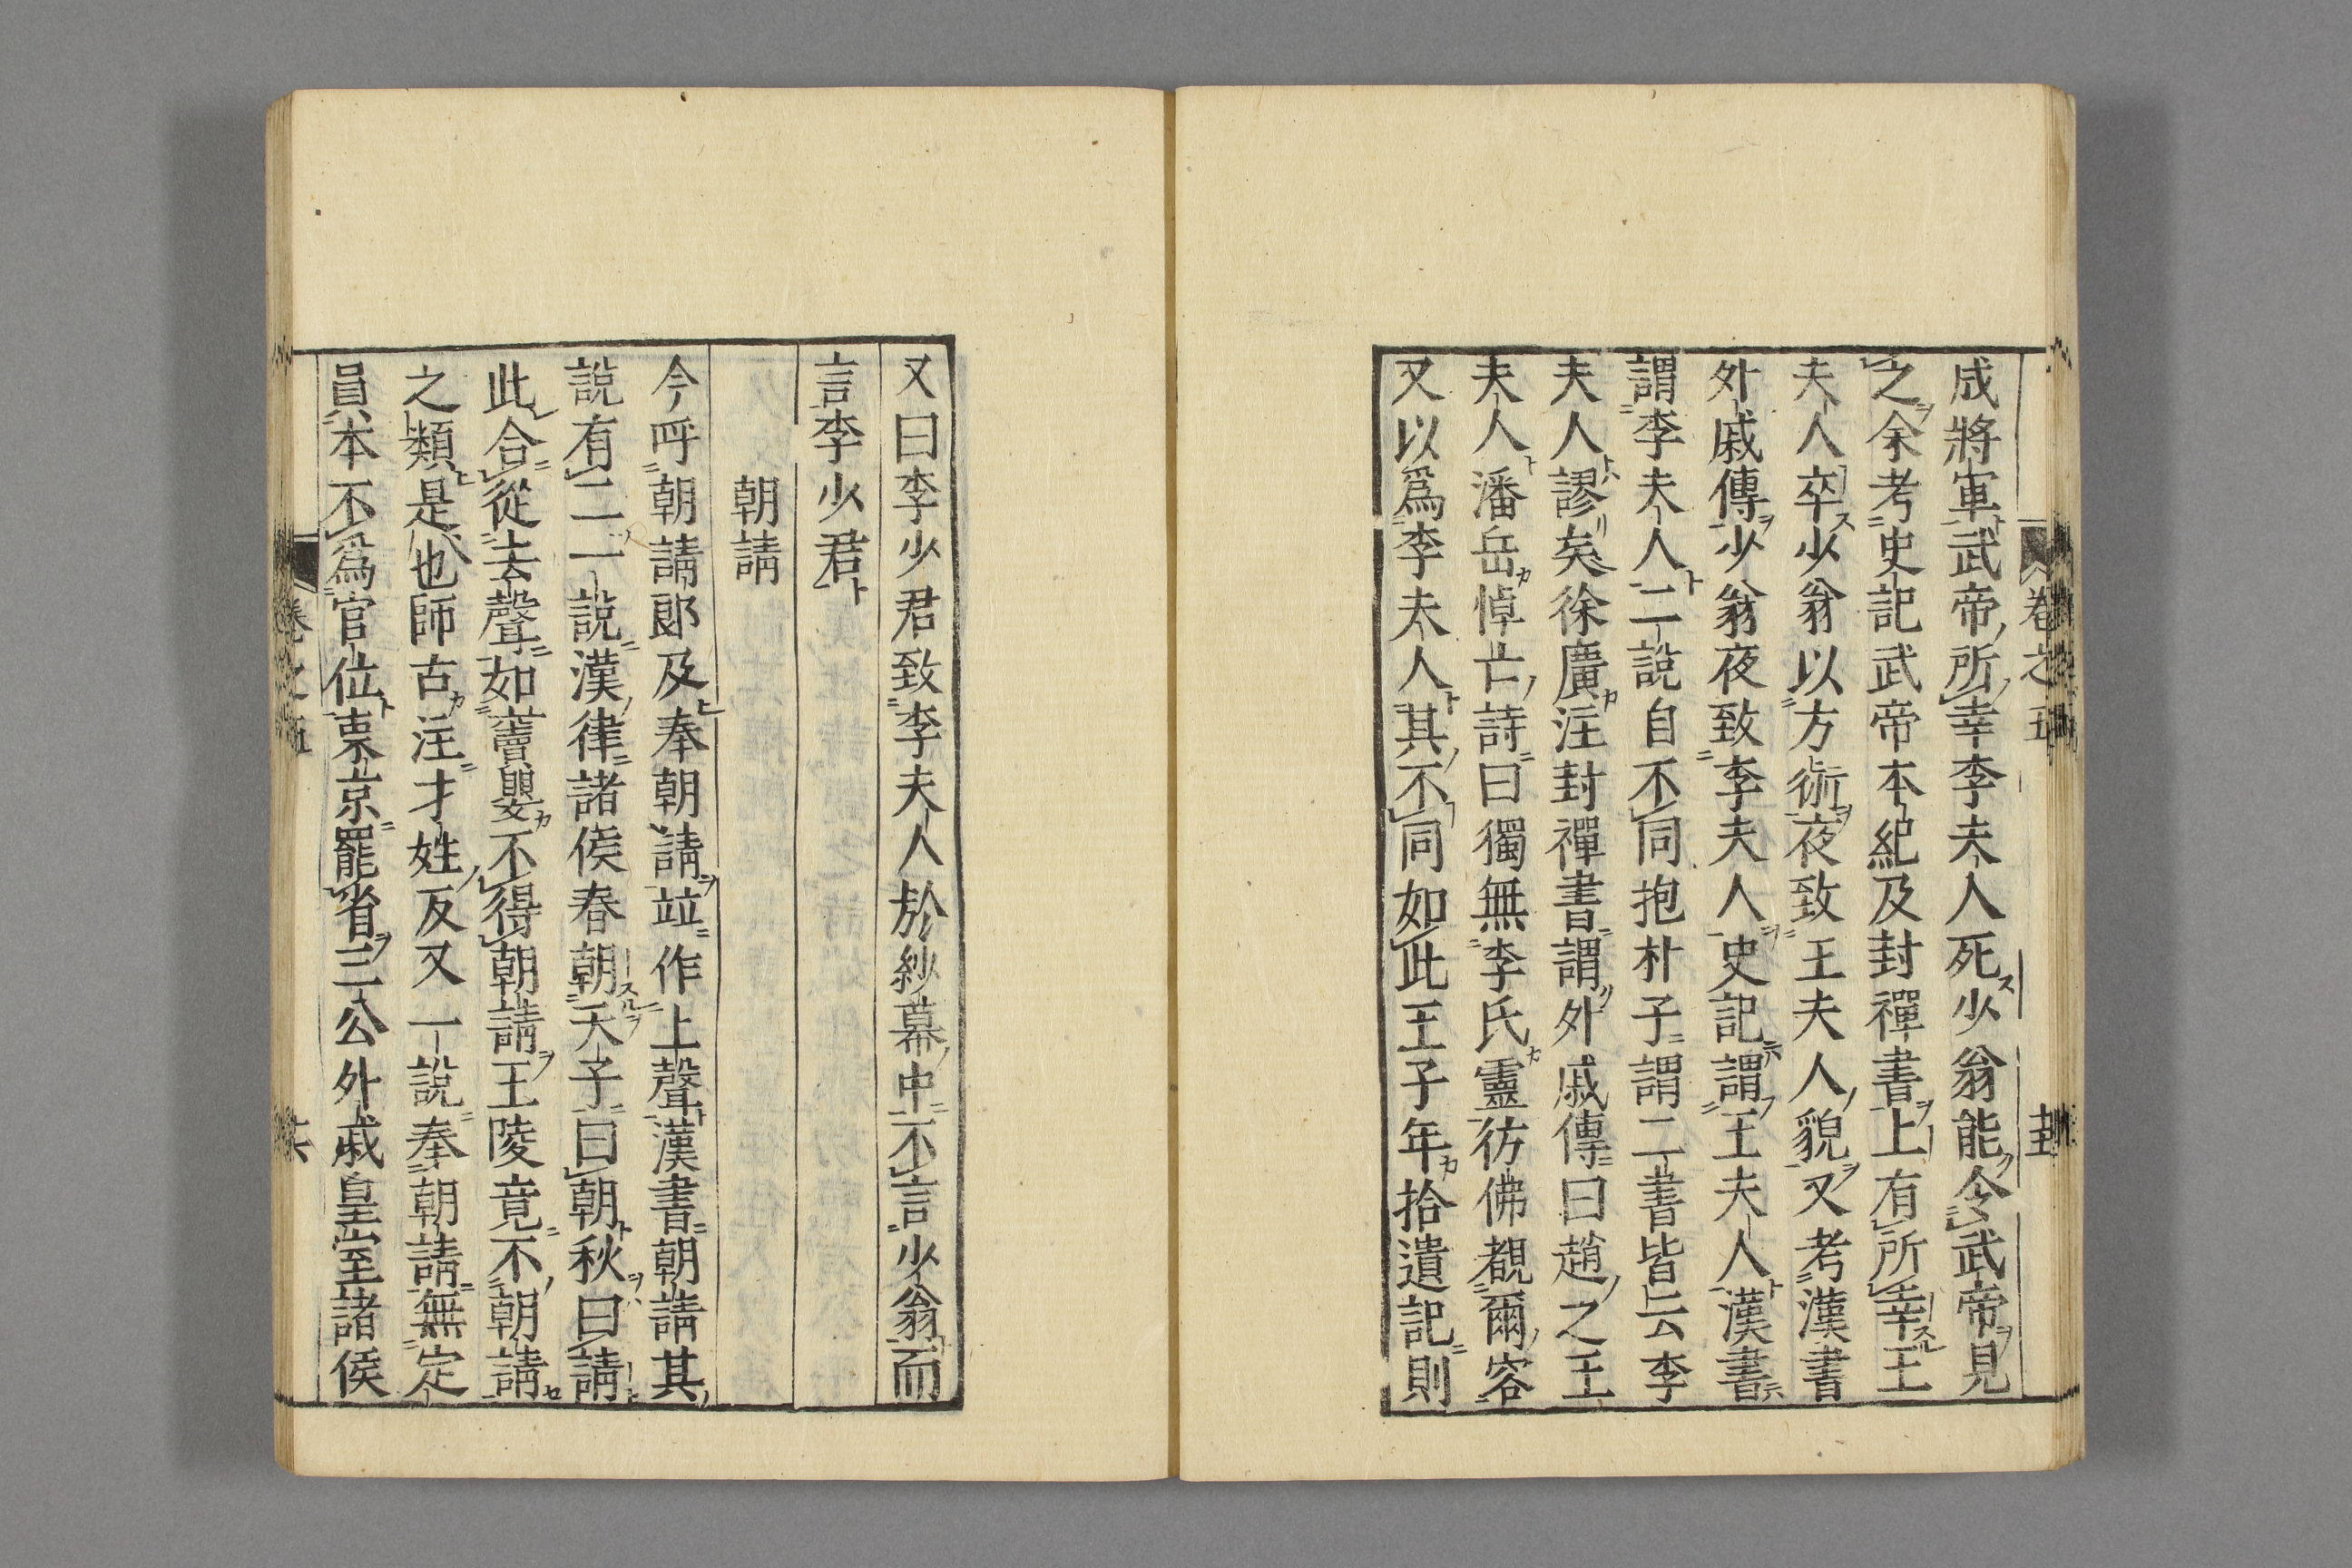 成將軍武帝所幸李夫人死少翁能令武帝見
之余考史記武帝本紀及封禪書上有所幸王
夫人卒少翁以方術夜致王夫人貌又考漢書
外戚傳少翁夜致李夫人史記謂王夫人漢書
謂李夫人二說自不同抱朴子謂二書皆云李
夫人謬矣徐廣注封禪書謂外戚傳曰趙之王
夫人潘岳悼亡詩曰獨無李氏靈彷佛覩爾容
又以爲李夫人其不同如此王子年拾遺記則
又曰李少君致李夫人於紗幕中不言少翁而
言李少君
朝請
今呼朝請郞及奉朝請竝作上聲漢書朝請其
說有二一說漢律諸侯春朝天子曰朝秋曰請
此合從去聲如竇嬰不得朝請王陵竟不朝請
之類是也師古注才姓反又一說奉朝請無定
員本不爲官位東京罷省三公外戚皇室諸侯
卷之五